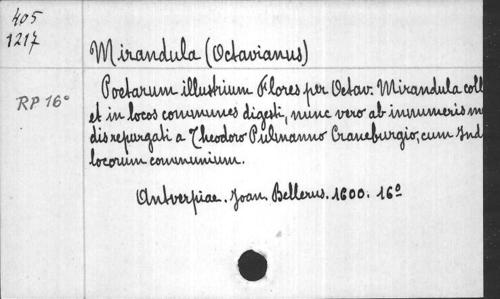 405
1217
Mirandula (Octavianus)
RP 16°
Poetarum illustrium Flores per Octav. Mirandula coll
et in locos communes digesti, nunc vero ab innumeris m
dis repurgati a Theodoro Pulmanno Craneburgio, cum Ind
locorum communium.
Antverpiae. Joan. Bellerus. 1600. 16°